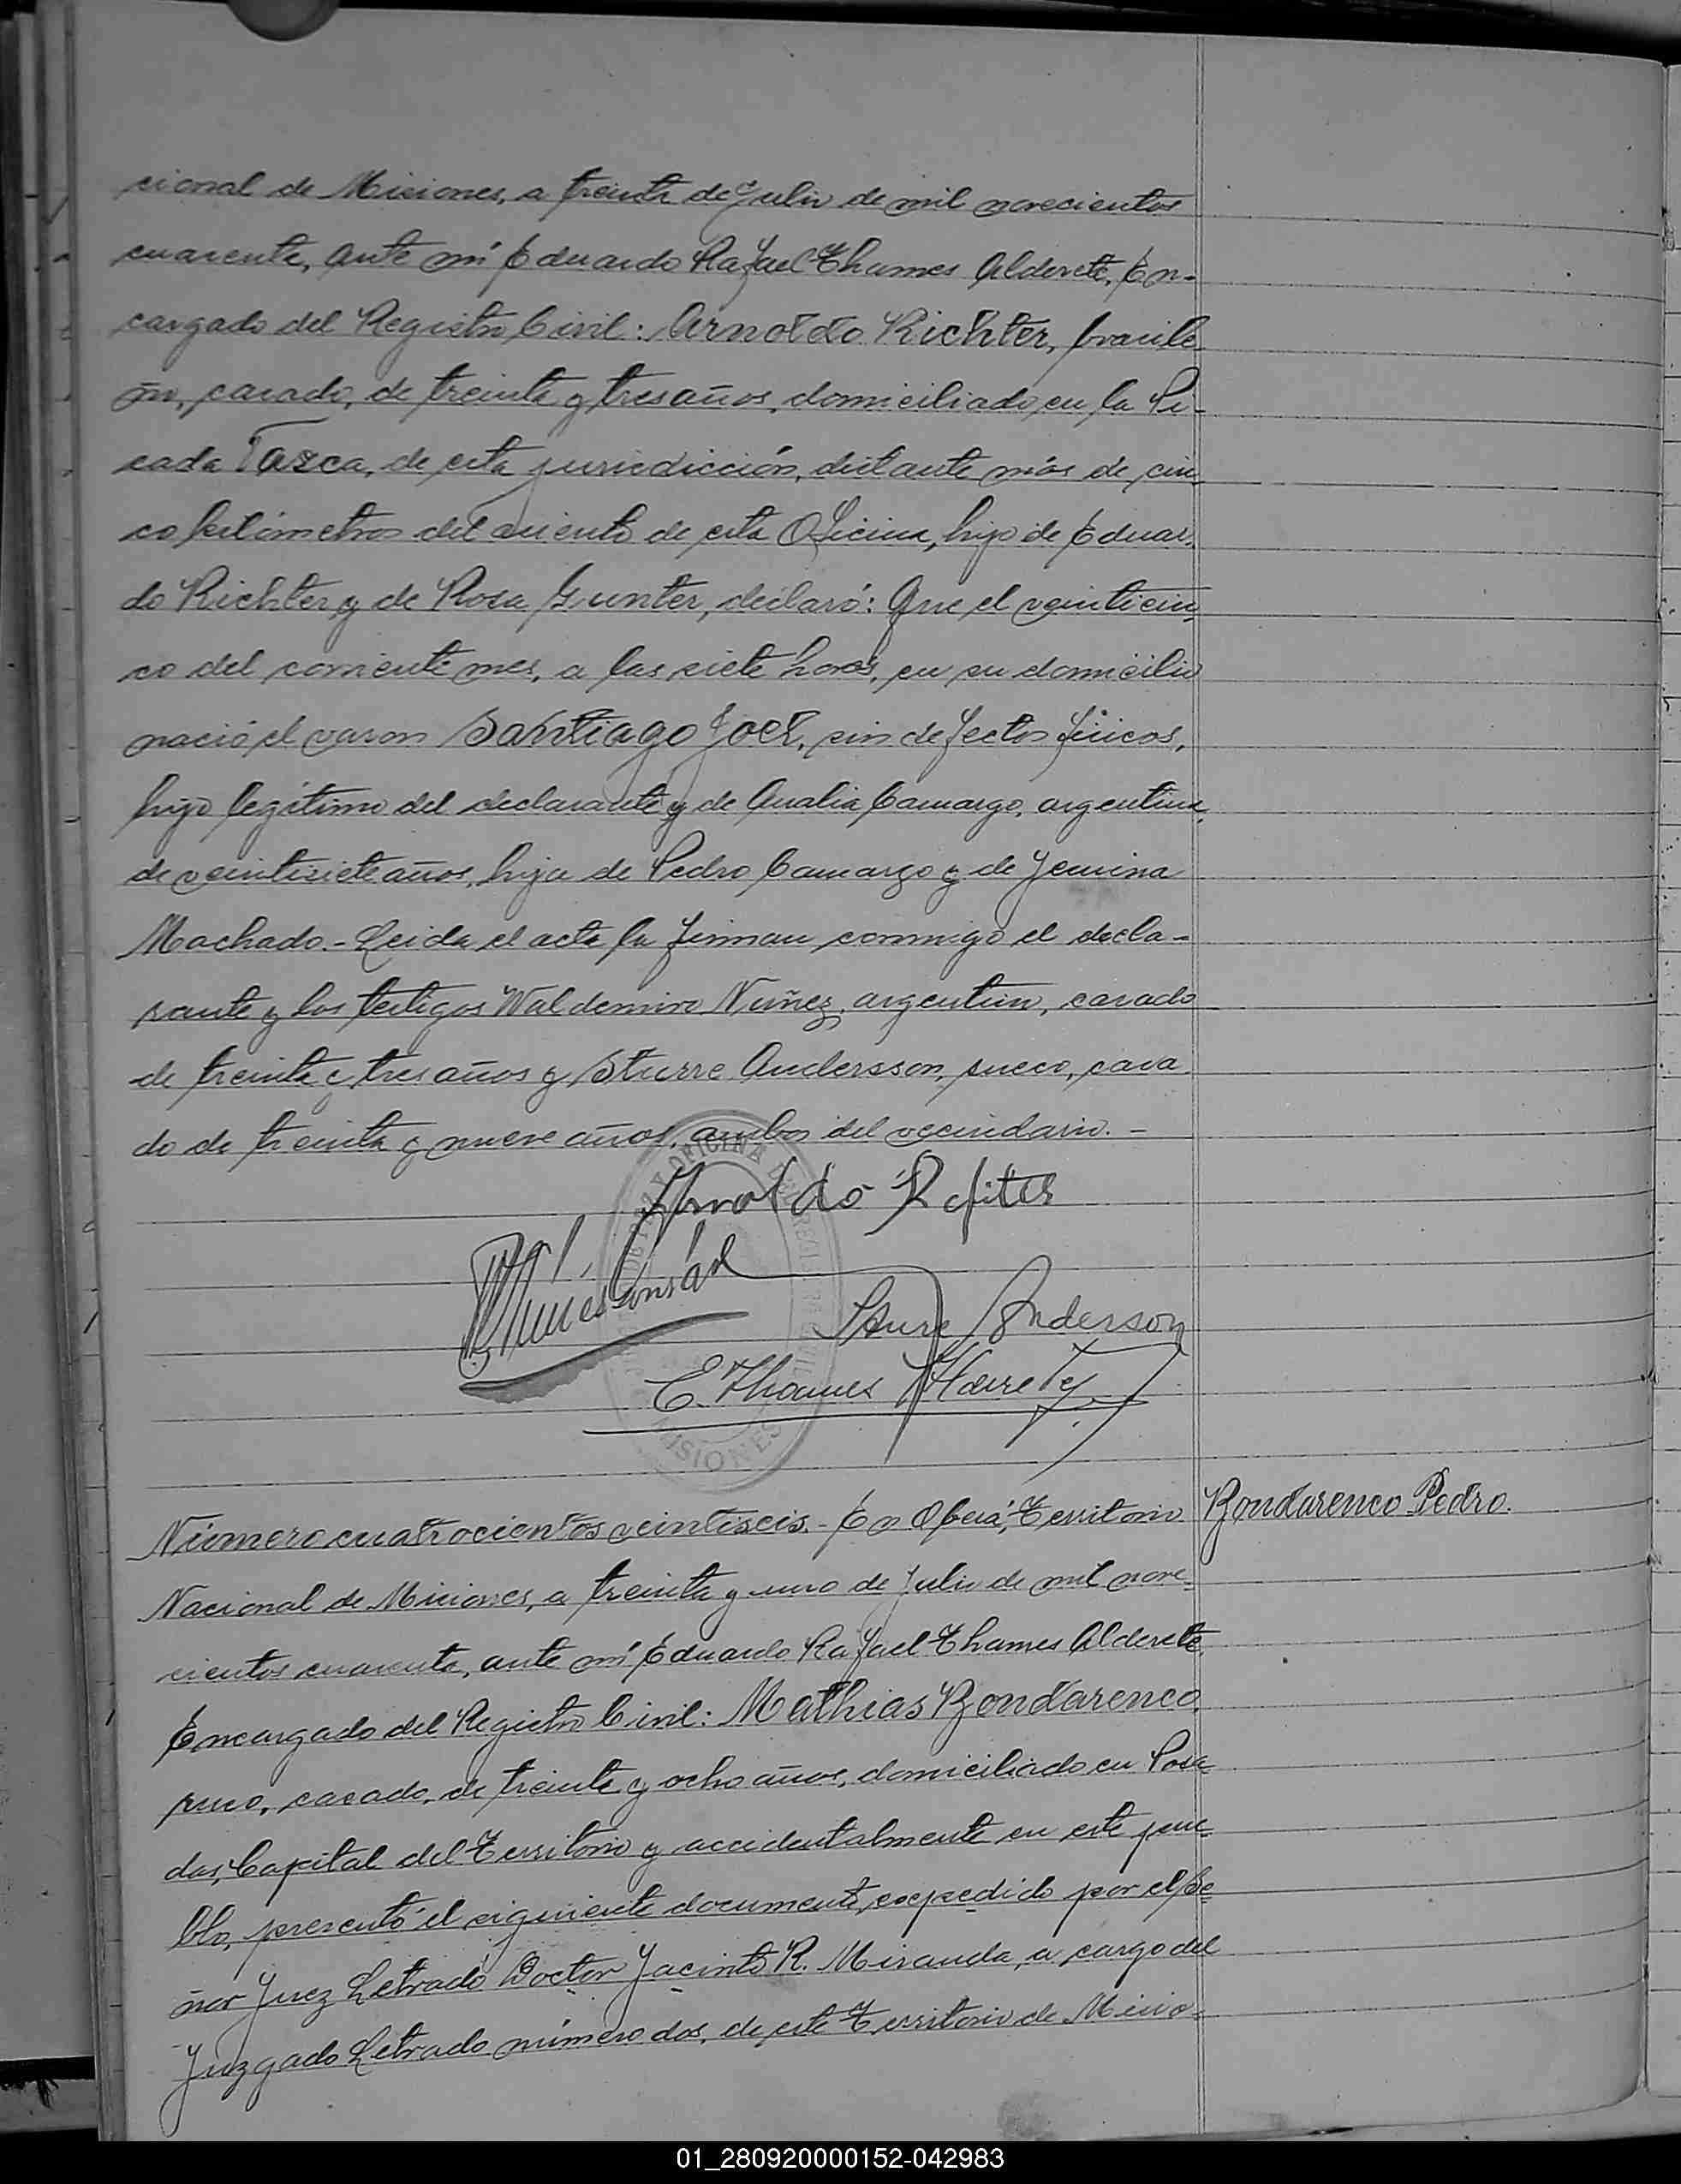 cional de Misiones, a treinta de Julio de mil novecientos
cuarenta, ante mí Eduardo Rafael Thames Alderete, En-
cargado del Registro Civil: Arnoldo Richter, brasile-
ño, casado, de treinta y tres años, domiciliado en la Pi-
cada Tasca, de esta jurisdicción, distante más de cin-
co kilómetros del asiento de esta Oficina, hijo de Eduar-
do Richter y de Rosa Gunter, declaró: Que el veinticin-
co del corriente mes, a las siete horas, en su domicilio
nació el varon Santiago Joel, sin defectos físicos,
hijo legítimo del declarante y de Analia Camargo, argentina,
de veintisiete años, hija de Pedro Camargo y de Jemina
Machado.- Leida el acta la firman conmigo el decla-
rante y los testigos Waldemiro Nuñez, argentino, casado
de treinta y tres años y Sturre Andersson, sueco, casa
do de treinta y nueve años, ambos del vecindario.-
Arnoldo
Sture Anderson
E. Thames Alderete
MISIONES
Número cuatrocientos veintiseis.- En Oberá, Territorio
Bondarenco Pedro.
Nacional de Misiones, a treinta y uno de Julio de mil nove-
cientos cuarenta, ante mí Eduardo Rafael Thames Alderete,
Encargado del Registro Civil: Mathias Bondarenco,
ruso, casado, de treinta y ocho años, domiciliado en Posa-
das, Capital del Territorio y accidentalmente en este pue-
blo, presentó el siguiente documento, expedido por el Se-
ñor Juez Letrado Doctor Jacinto R. Miranda, a cargo del
Juzgado Letrado número dos, de este Territorio de Misio-
01_280920000152-042983